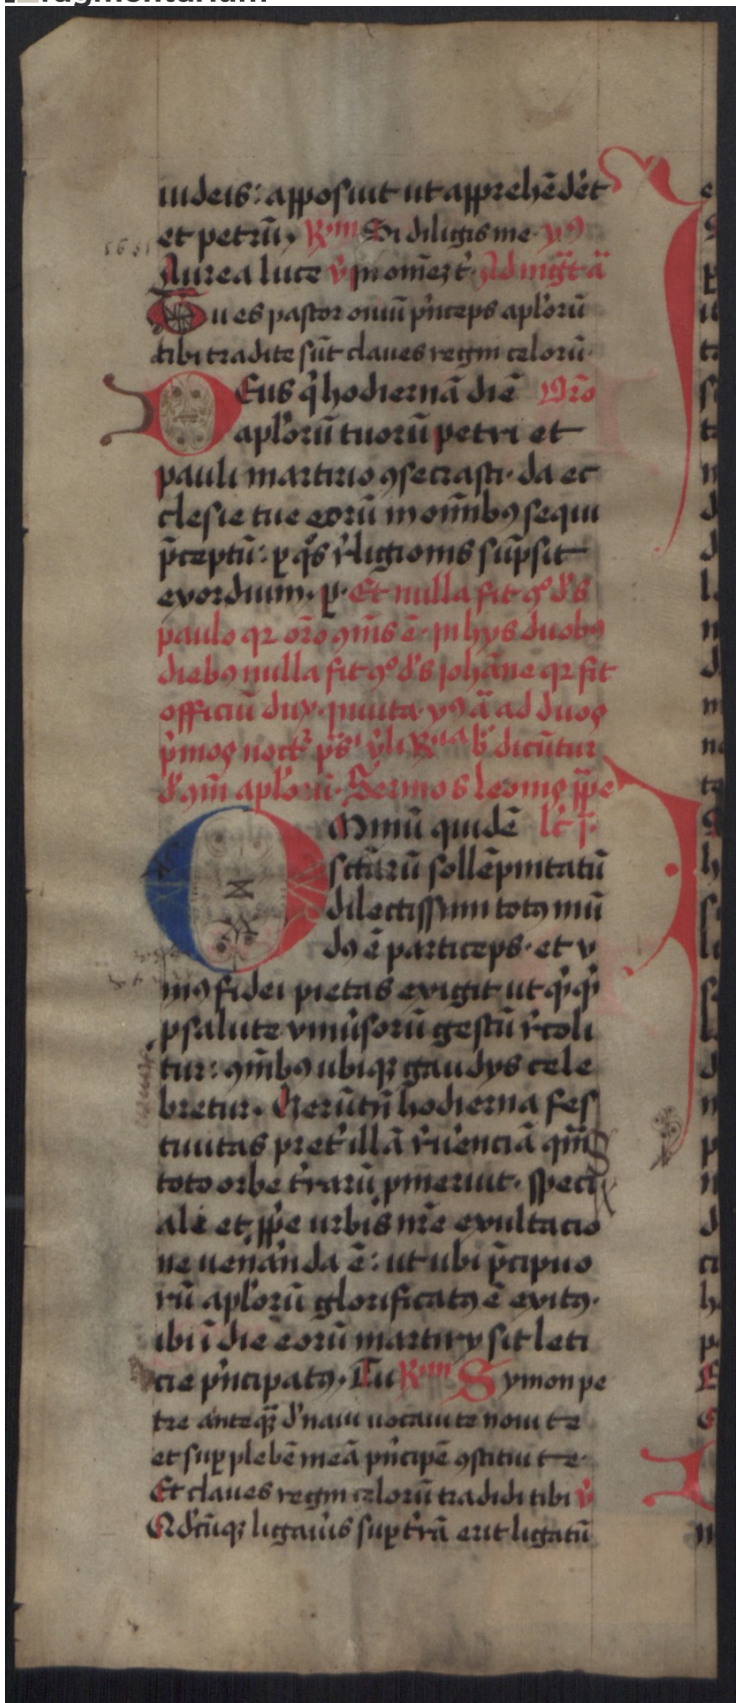 fragmentarium
iudeis: apposuit ut apprehēdet
et petrū. R̄m Si diligis me. v9
Aurea luce v̄ In omēz t̄. Ad mgt̄ ā
Tu es pastor oviū pnceps aplorū
tibi tradite sūt claves regni celorū.
Deus q̇ hodiernā diē Oro
aplorū tuorū petri et
pauli martirio 9secrasti. da ec
clesie tue eorū in om̄ib9 sequi
p̄ceptū: p q̊s rligionis sūpsit
exordium. p. Et nulla fit 9o d̄s
paulo qr oro 9īs ē. In hys duob9
dieb9 nulla fit 9o d̄s Johāne qr fit
officiū dux. Invita. v9 ā ad duos
pmos noct̄
d̄ 9m̄ aplorū. Sermo s leonis ppe
Omniū quidē lc̄ p̄
sctārū sollēpnitatū
dilectissimi tot9 mū
d9 ē particeps. et v
ni9 fidei pietas exigit ut q̇q̇
p salute vniūsorū gestū rcoli
tur: 9ib9 ubiqz gaudys cele
bretur. Verūtn̄ hodierna fes
tiuitas pret illā rūenciā qm̄
toto orbe trarū pmeruit. speci
ale et ppe urbis nr̄e exultacio
ne uenānda ē: ut ubi p̄cipuo
rū aplorū glorificat9 ē exit9.
ibi ī die eorū martiry sit leti
cie pncipat9. Tu R̄m Symon pe
tre anteqz d̄ naui uocaui te noui te
et sup plebē meā pncipē 9stitui te.
Et claues regni celorū tradidi tibi v̄
Qd̄cūqz ligauis sup trā erit ligatū